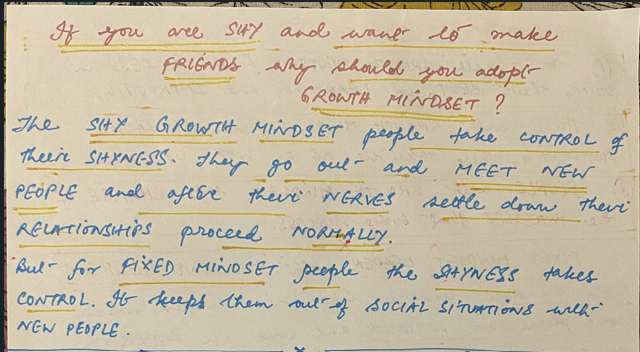 If you are SHY and want to make
FRIENDS why should you adopt
GROWTH MINDSET?
The SHY GROWTH MINDSET people take CONTROL of
their SHYNESS. They go out and MEET NEW
PEOPLE and after their NERVES settle down their
RELATIONSHIPS proceed NORMALLY.
But for FIXED MINDSET people the SHYNESS takes
CONTROL. It keeps them out of SOCIAL SITUATIONS with
NEW PEOPLE.